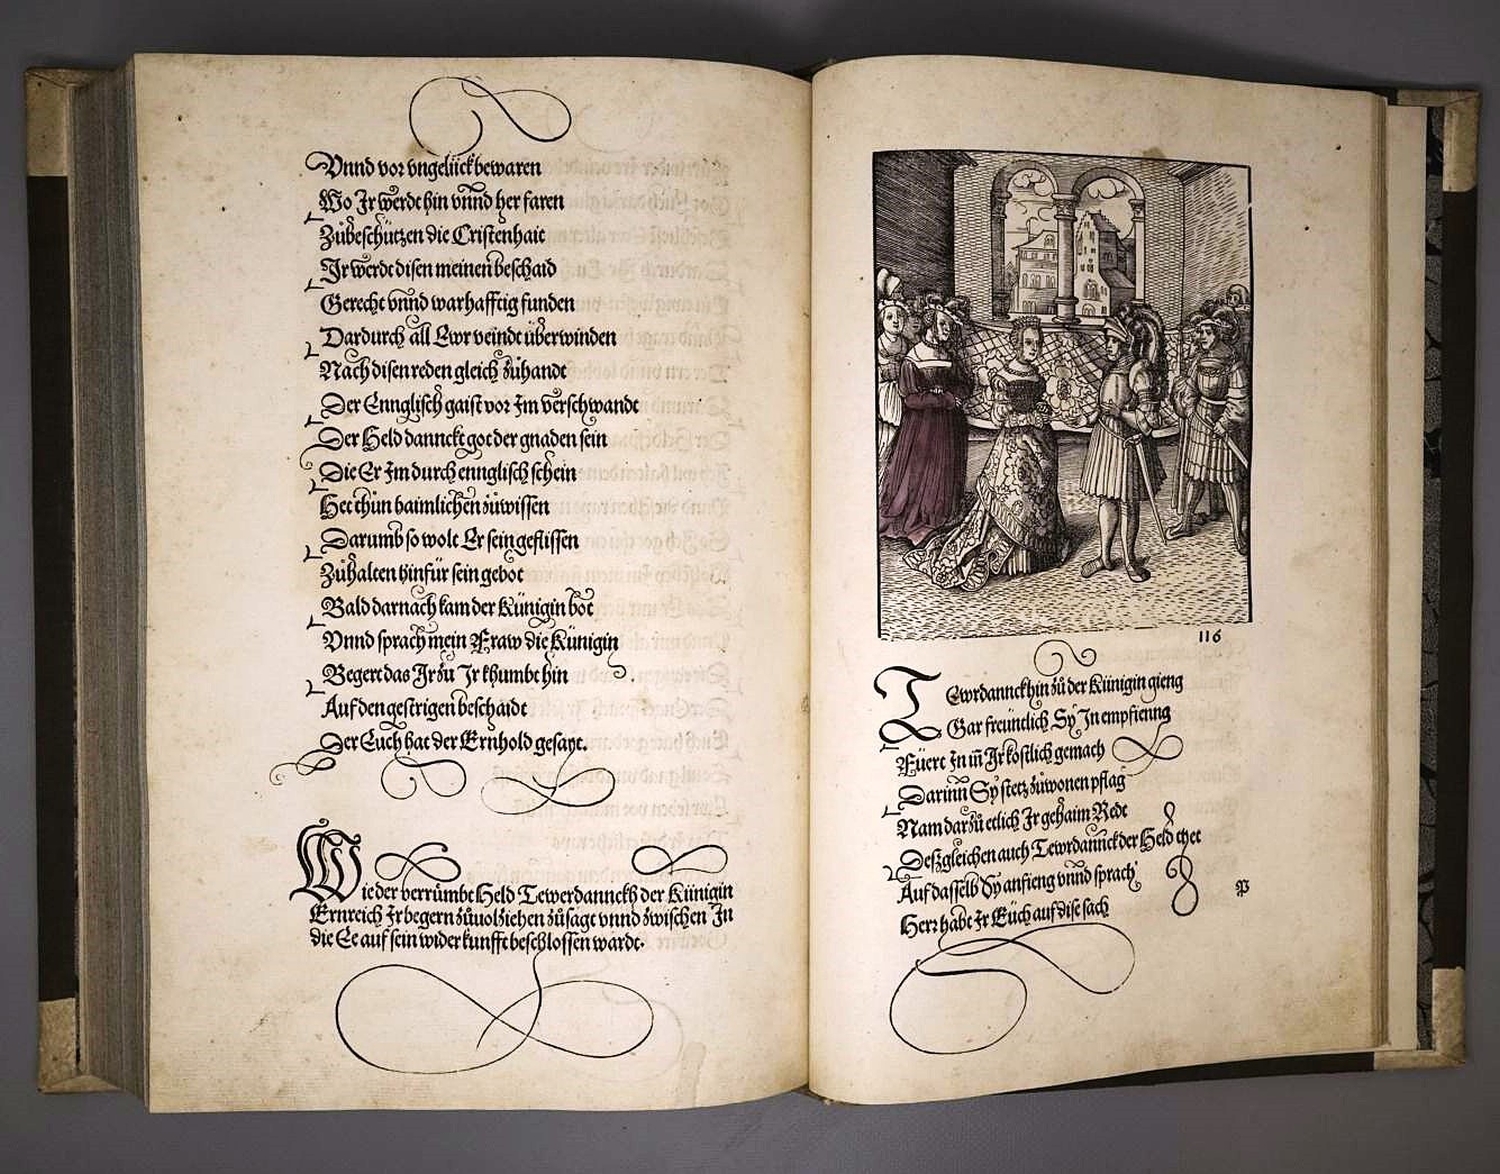 Vnnd vor vngelück bewaren
Wo Ir werdt hin vnnd her faren
Zůbeschützen die Cristenhait
Ir werdt disen meinen beschaid
Gerecht vnnd warhafftig funden
Dardurch all Ewr veindt überwinden
Nach disen reden gleich zůhandt
Der Ennglisch gaist vor Im verschwandt
Der Held danncket got der gnaden sein
Die Er Im durch ennglisch schein
Het thůn haimlichen zůwissen
Darumb so wolt Er sein geflissen
Zůhalten hinfür sein gebot
Bald darnach kam der Künigin bot
Vnnd sprach mein Fraw die Künigin
Begert das Ir zů Ir khumbt hin
Auf den gestrigen beschaidt
Der Euch hat der Ernhold gesayt.
Wie der verrümbt Held Tewerdannckh der Künigin
Ernreich Ir begern zůuolziehen zůsagt vnnd zwischen In
die Ee auf sein widerkunfft beschlossen wardt.
116
Tewrdannckh hin zů der Künigin gieng
Gar freüntlich Sy In empfienng
Füert In in Ir kostlich gemach
Darinn Sy stetz zůwonen pflag
Nam darzů etlich Ir gehaim Redt
Deszgleichen auch Tewrdannck der Held thet
Auf dasselb Sy anfieng vnnd sprach
Herr habt Ir Eüch auf dise sach
P